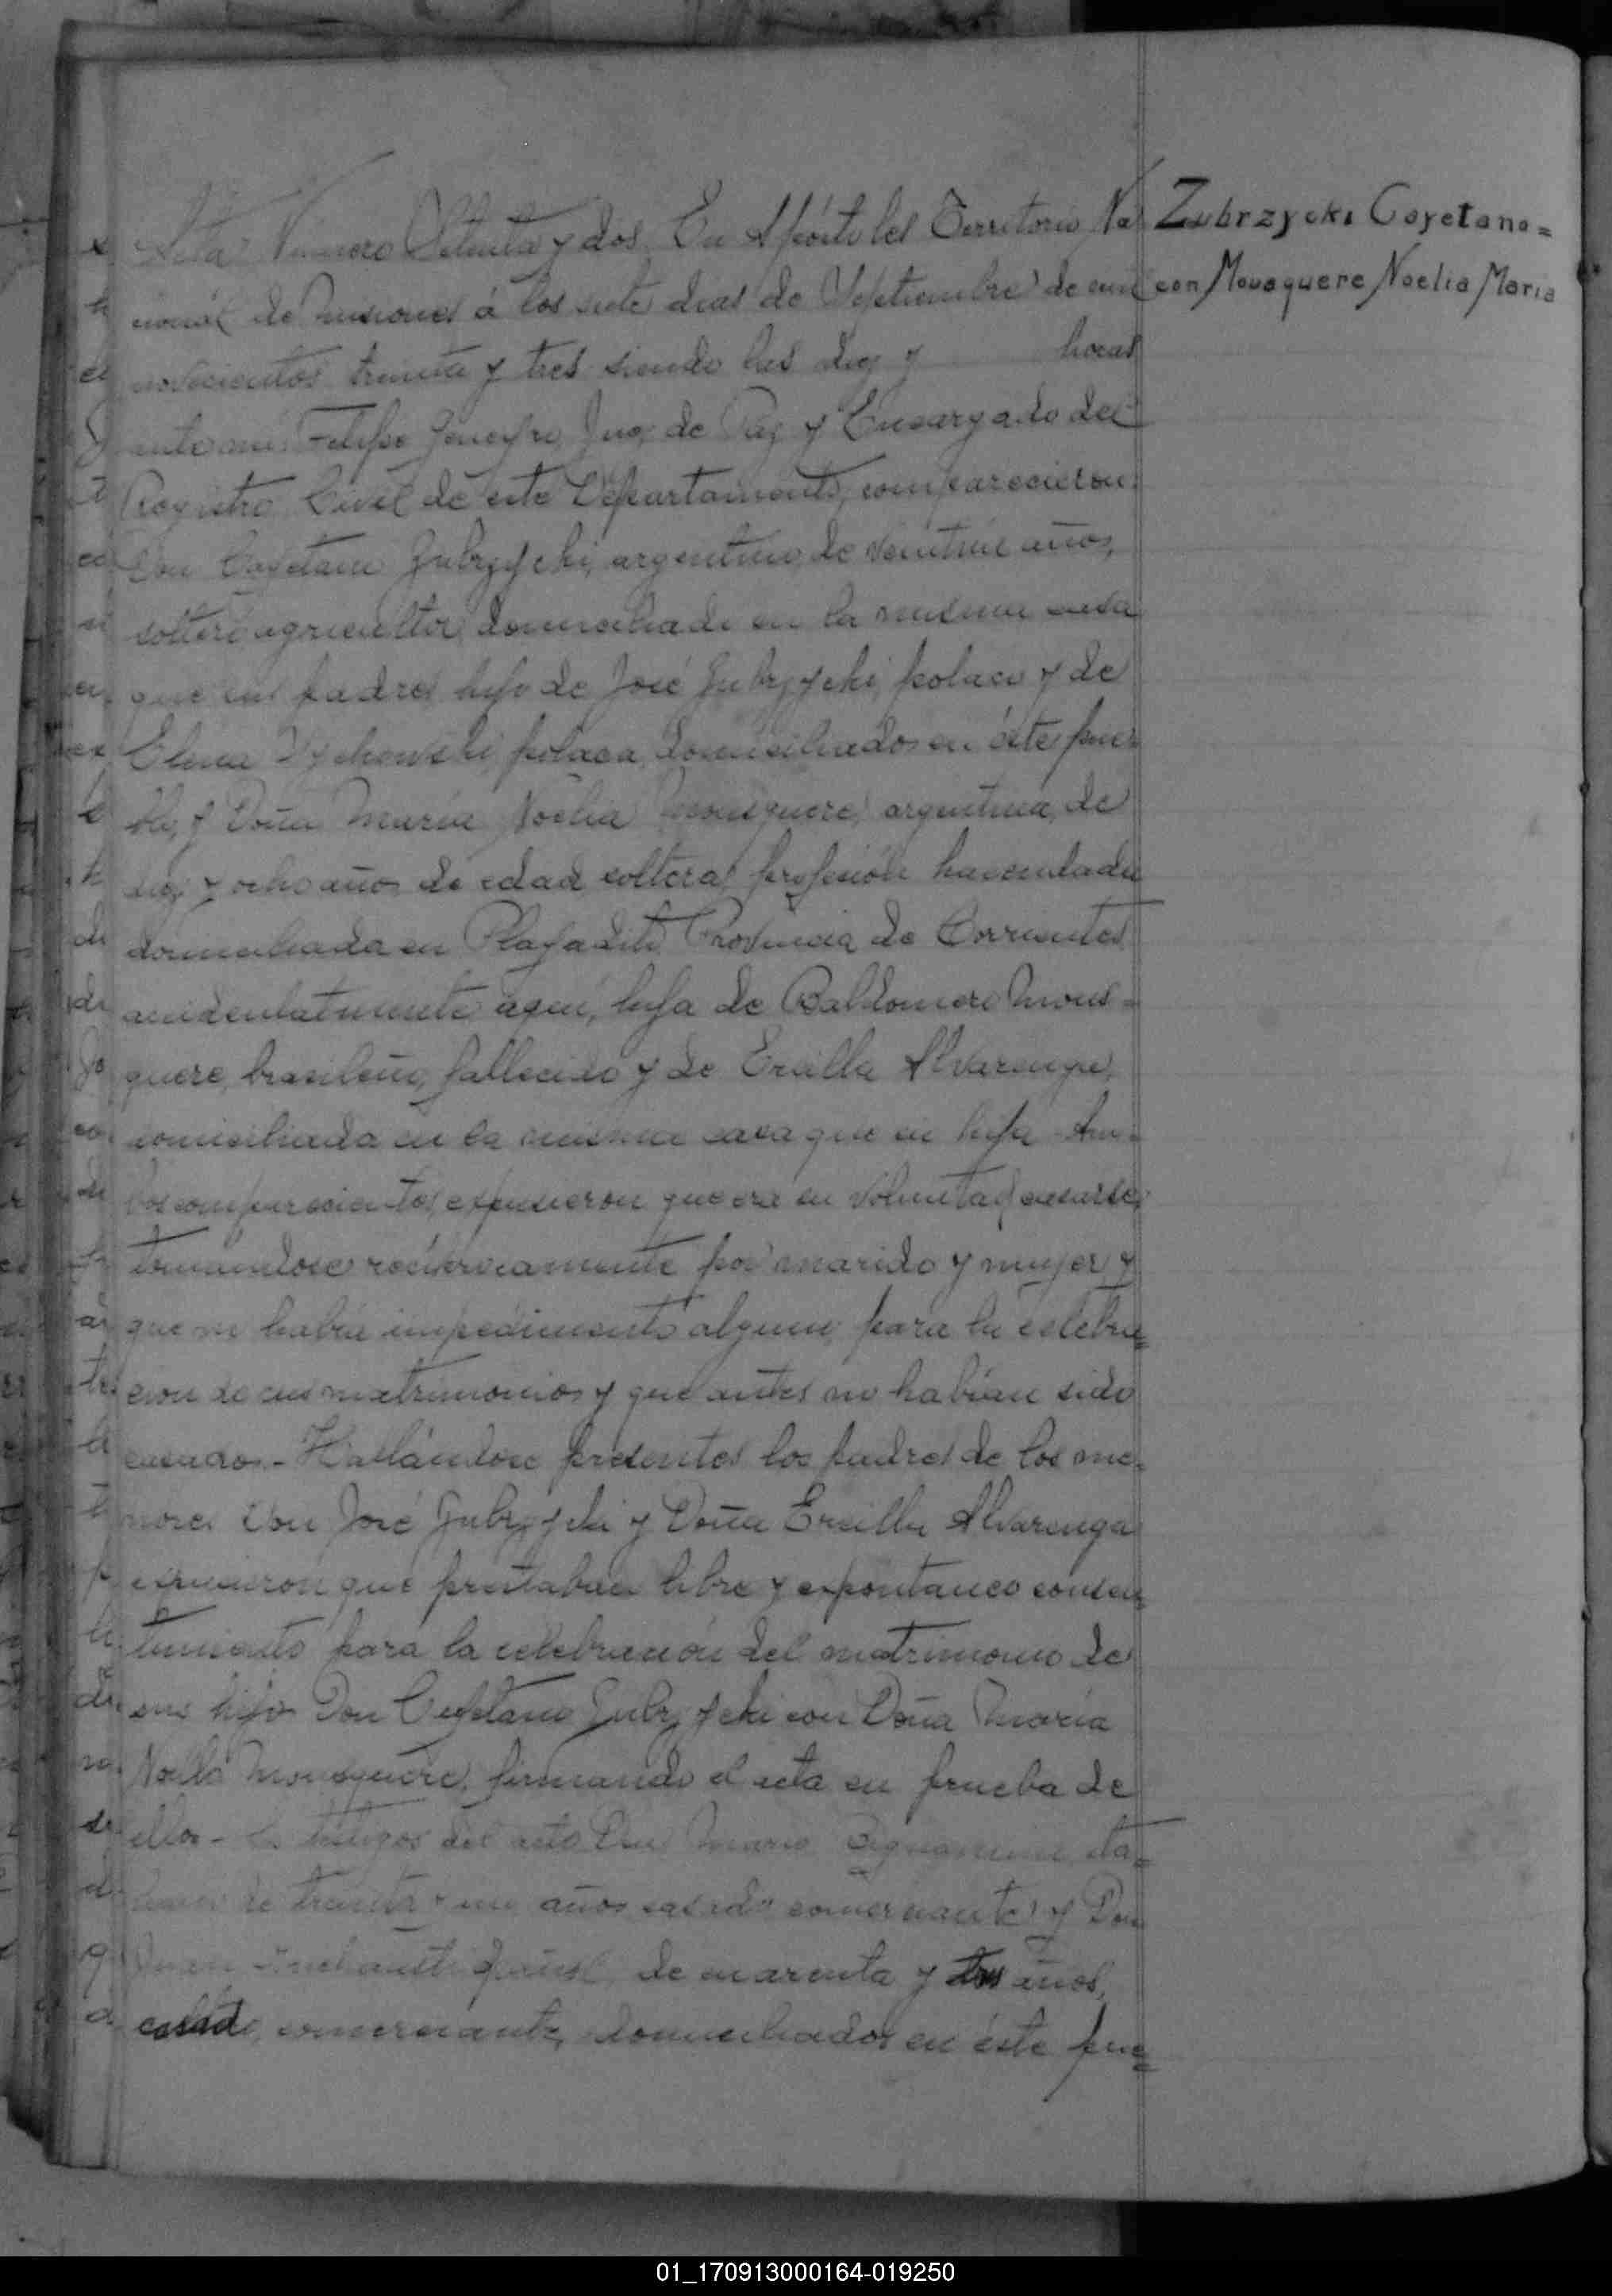 Zubrzycki Cayetano =
con Mousquere Noelia Maria
Acta Número Setenta y dos. En Apóstoles Territorio Na
cional de Misiones á los siete dias de Septiembre de mil
novecientos treinta y tres siendo las diez y horas
ante mi: Felipe Juez de Paz y Encargado del
Registro Civil de este Departamento, comparecieron:
Don Cayetano Zubrzycki, argentino, de años,
soltero, agricultor, domiciliado en la misma casa
que sus padres hijo de José Zubrzycki, polaco y de
Elena polaca, domiciliados en éste pue=
blo, y Doña María Noelia Mousquere, argentina, de
diez y ocho años de edad, soltera, profesión hacendada
domiciliada en Playadito Provincia de Corrientes
accidentalmente aquí, hija de Baldomero Mous=
quere, brasileño, fallecido y de Ercilla Alvarenga,
domiciliada en la misma casa que su hija. Am=
bos comparecientes, expusieron que era su voluntad casarse,
tomándose recíprocamente por marido y mujer y
que no había impedimento alguno, para la celebra=
cion de sus matrimonios y que antes no habían sido
casados.- Hallándose presentes los padres de los me=
nores Don José Zubrzycki y Doña Ercilla Alvarenga
expusieron que prestaban libre y expontaneo consen=
timiento para la celebración del matrimonio de
sus hijos Don Cayetano Zubrzycki con Doña María
Noelia Mousquere, firmando el acta en prueba de
ellos- testigos del acto Don Mario ita=
liano de treinta y un años casado comerciante y Don
Juan de cuarenta y tres años,
casado, comerciante, domiciliados en éste pue=
01_170913000164-019250